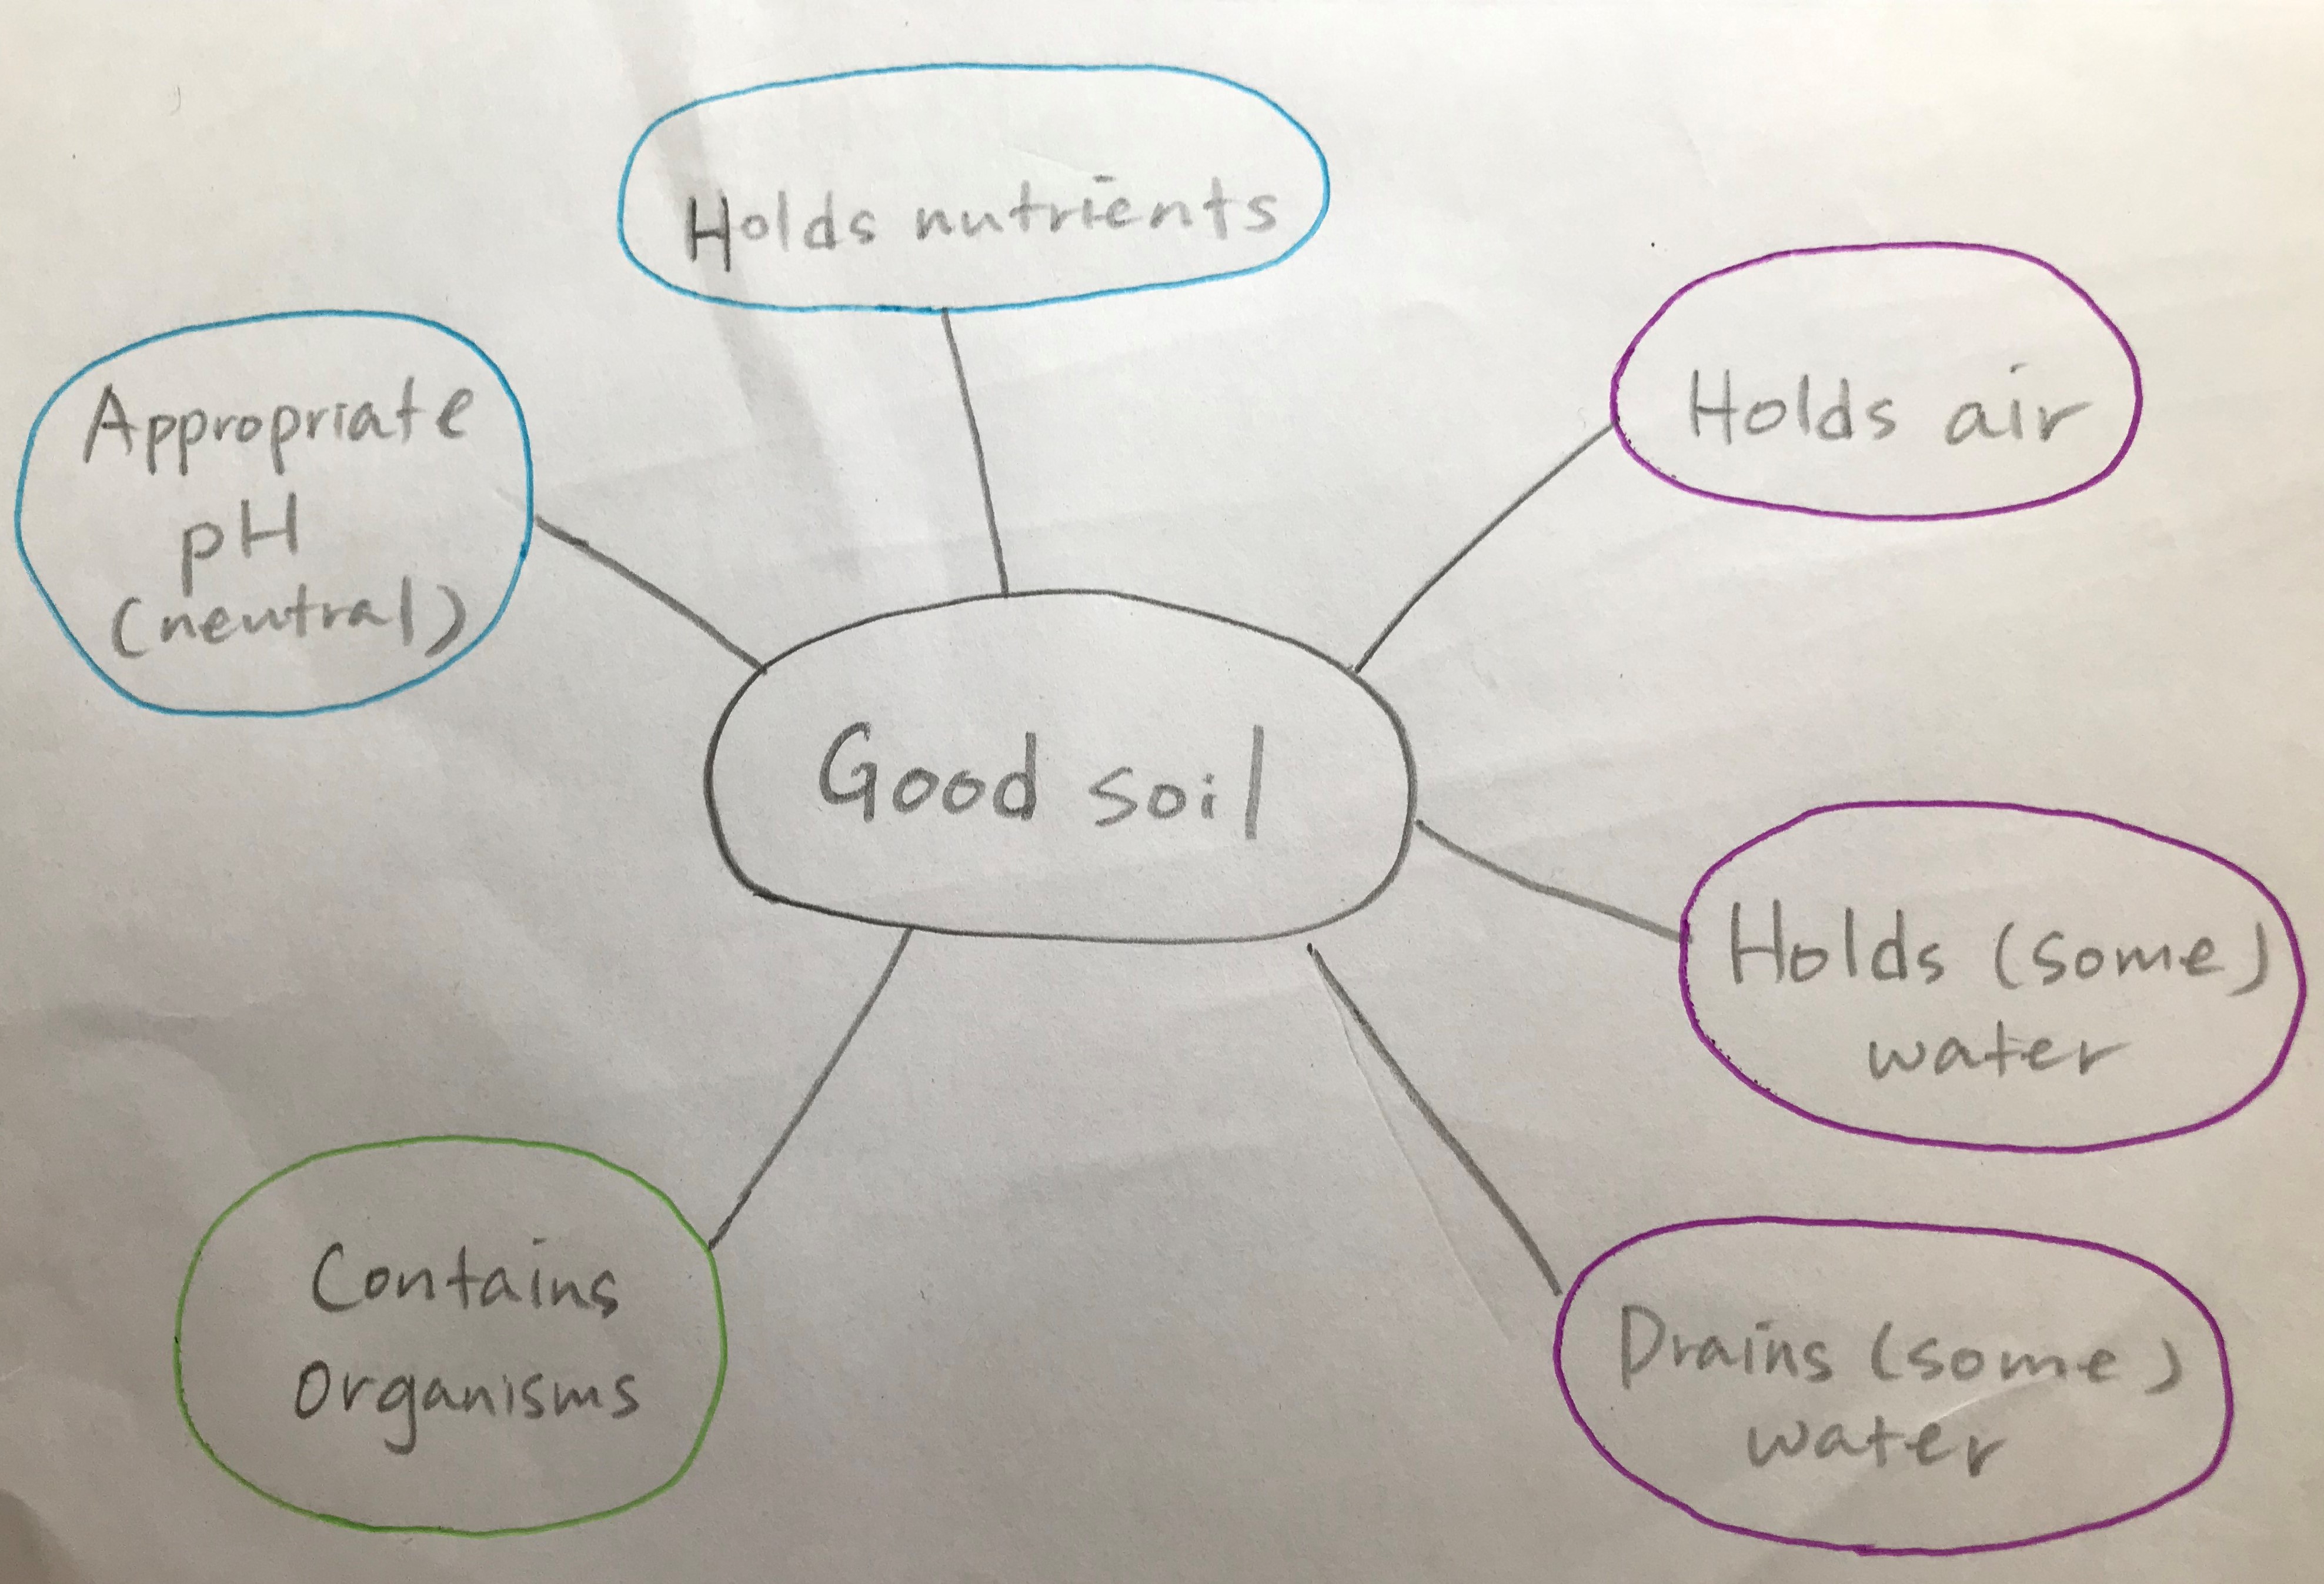 Holds nutrients
Holds air
Appropriate
pH
(neutral)
Good soil
Holds (some)
water
Contains
Organisms
Drains (some)
water